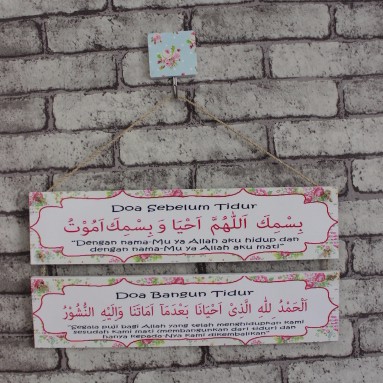 Doa Sebelum Tidur
بِسْمِكَ اَللّٰهُمَّ اَحْيَا وَ بِسْمِكَ اَمُوْتُ
"Dengan nama-Mu ya Allah aku hidup dan
dengan nama-Mu ya Allah aku mati"
Doa Bangun Tidur
اَلْحَمْدُ لِلّٰهِ الَّذِىْ اَحْيَانَا بَعْدَمَآ اَمَاتَنَا وَاِلَيْهِ النُّشُوْرُ
"Segala puji bagi Allah yang telah menghidupkan kami
sesudah kami mati (membangunkan dari tidur) dan
hanya kepada-Nya kami dikembalikan"